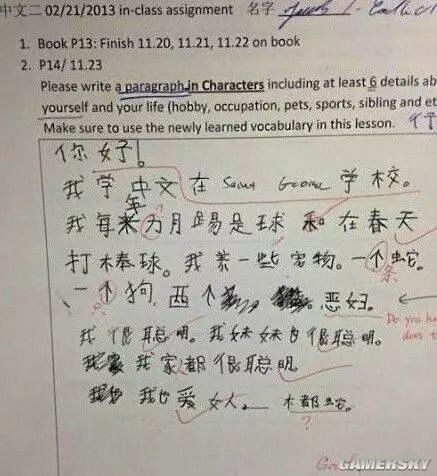 中文二 02/21/2013 in-class assignment 名字
1. Book P13: Finish 11.20, 11.21, 11.22 on book
2. P14/ 11.23
Please write a paragraph in Characters including at least 6 details ab
yourself and your life (hobby, occupation, pets, sports, sibling and et
Make sure to use the newly learned vocabulary in this lesson.
你好!
我学中文在 Saint George 学校。
我每年 月踢足球和在春天
打棒球。我养一些宠物。一个蛇。
条
一个狗,两个 恶妇。
Do you ha
does t
我很聪明。我妹妹也很聪明。
我家都很聪明。
我也爱女人。 木都蛇。
?
GAMERSKY